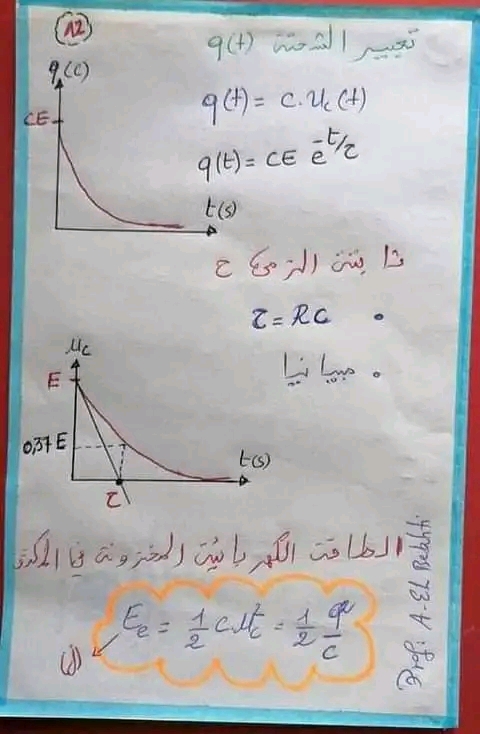 12
تعبير الشحنة q(t)
q(C)
CE
t(s)
q(t) = C.Uc(t)
q(t) = CE e^-t/τ
ثابتة الزمن τ
τ = RC •
• مبيانيا
Uc
E
0,37E
τ
t(s)
الطاقة الكهربائية المخزونة في المكثف
Ee = 1/2 C Uc² = 1/2 q²/C
(J)
Prof: A-El Bekhti